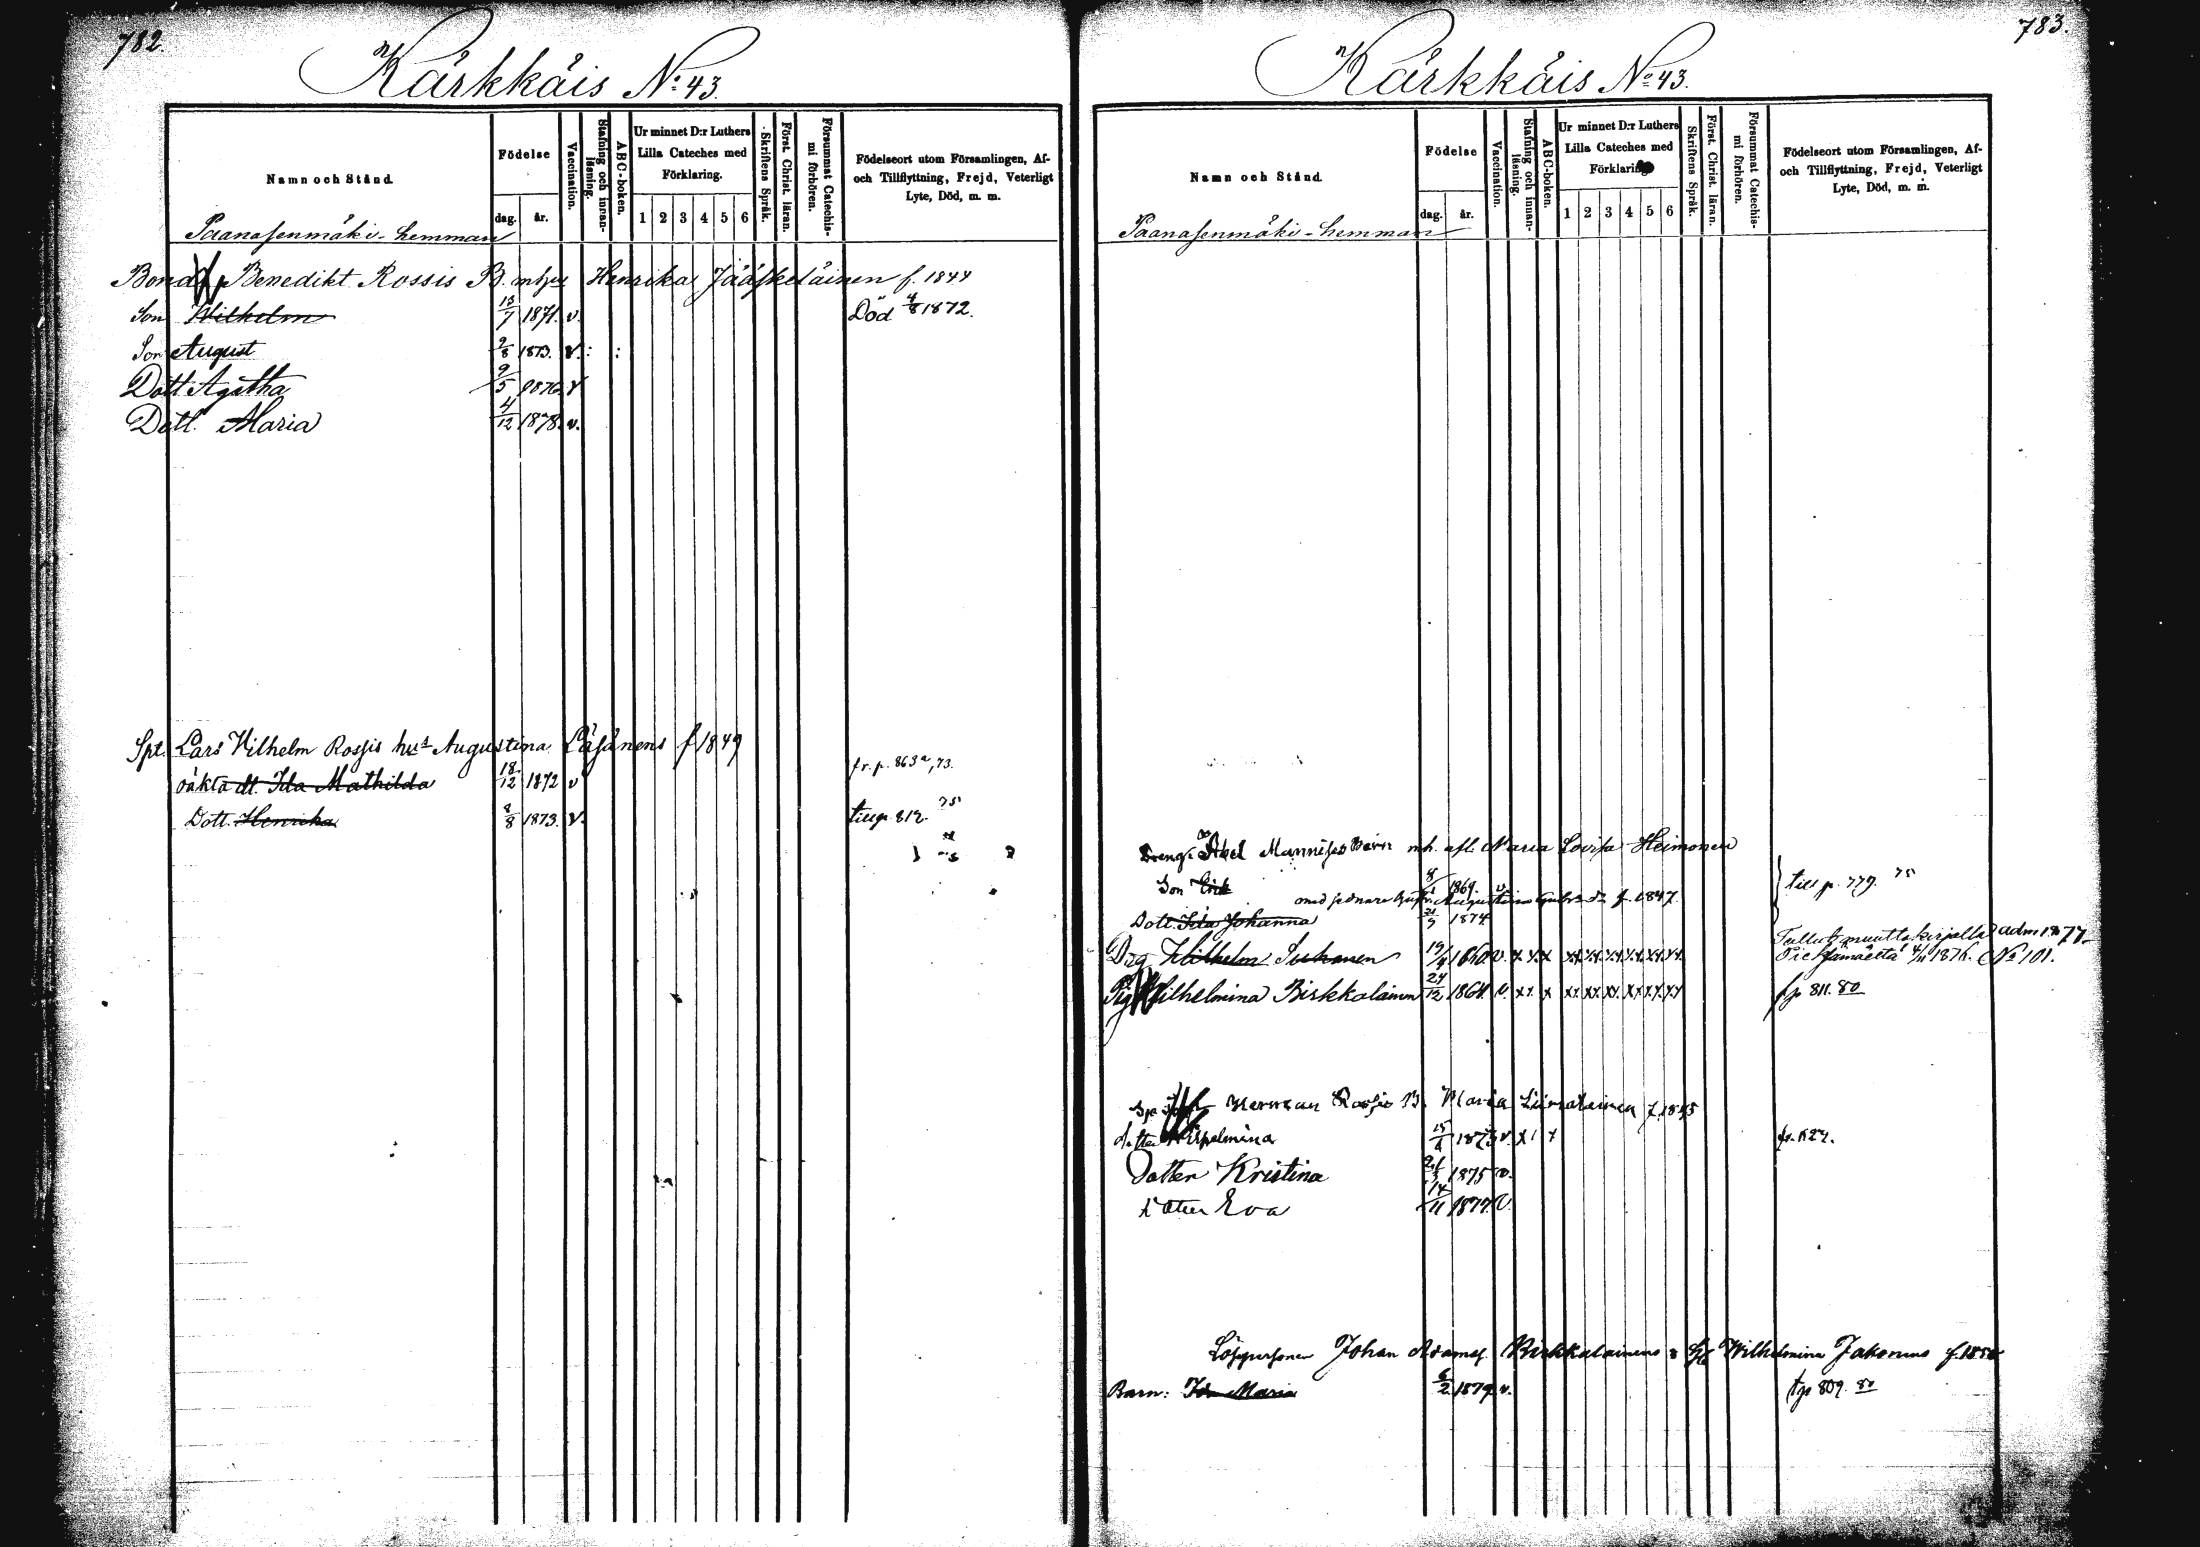 782.
Kärkkäis No: 43.
Namn och Stånd.
Födelse
dag. år.
Vaccination.
Stafning och innan-läsning.
ABC-boken.
Ur minnet D:r Luthers Lilla Cateches med Förklaring.
1 2 3 4 5 6
Skriftens Språk.
Först. Christ. läran.
Försummat Catechis-mi förhören.
Födelseort utom Församlingen, Af-
och Tillflyttning, Frejd, Veterligt
Lyte, Död, m. m.
Paanasenmäki-hemman
Benedikt Rossis B. m hu Henrika Jääskeläinen f. 1844
Son Wilhelm 13/7 1871. v. Död 4/8 1872.
Son August 2/8 1873. v.
Dott Agatha 9/5 1876. v
Dott. Maria 4/12 1878. v.
Spt. Lars Wilhelm Rossis hu Augustina Läsänens f 1849
oäkta dt. Ida Mathilda 18/12 1872 v fr. p. 863a, 73.
Dott. Henrika 8/8 1873. v. till p. 812. 75
783.
Kärkkäis No: 43.
Namn och Stånd.
Födelse
dag. år.
Vaccination.
Stafning och innan-läsning.
ABC-boken.
Ur minnet D:r Luthers Lilla Cateches med Förklaring.
1 2 3 4 5 6
Skriftens Språk.
Först. Christ. läran.
Försummat Catechis-mi förhören.
Födelseort utom Församlingen, Af-
och Tillflyttning, Frejd, Veterligt
Lyte, Död, m. m.
Paanasenmäki-hemman
Abel m. afl. Maria Lovisa Heimonen
Son Erik 1869. v till p. 779. 75
med sednare f. 1847
Dott. Ida Johanna 21/9 1874
Drg Wilhelm 19/4 1860. v. xx x xx xx xx xx xx xx Tullut muuttokirjalla adm 1877.
1876. No 101.
Pig Wilhelmina Birkkalainen 24/12 1864. v. xx x xx xx xx xx xx xx fp 811. 80
Herman Rossis B. Maria Liimatainen f. 1855
dotter 15/4 1873 v. x 1 x
Dotter Kristina 1875 v.
Dotter Eva 14/11 1877. v.
Lösperson Johan Adamsf. Birkkalainens Wilhelmina f. 1850
Barn: Ida Maria 6/2 1879. v. tp 809. 80